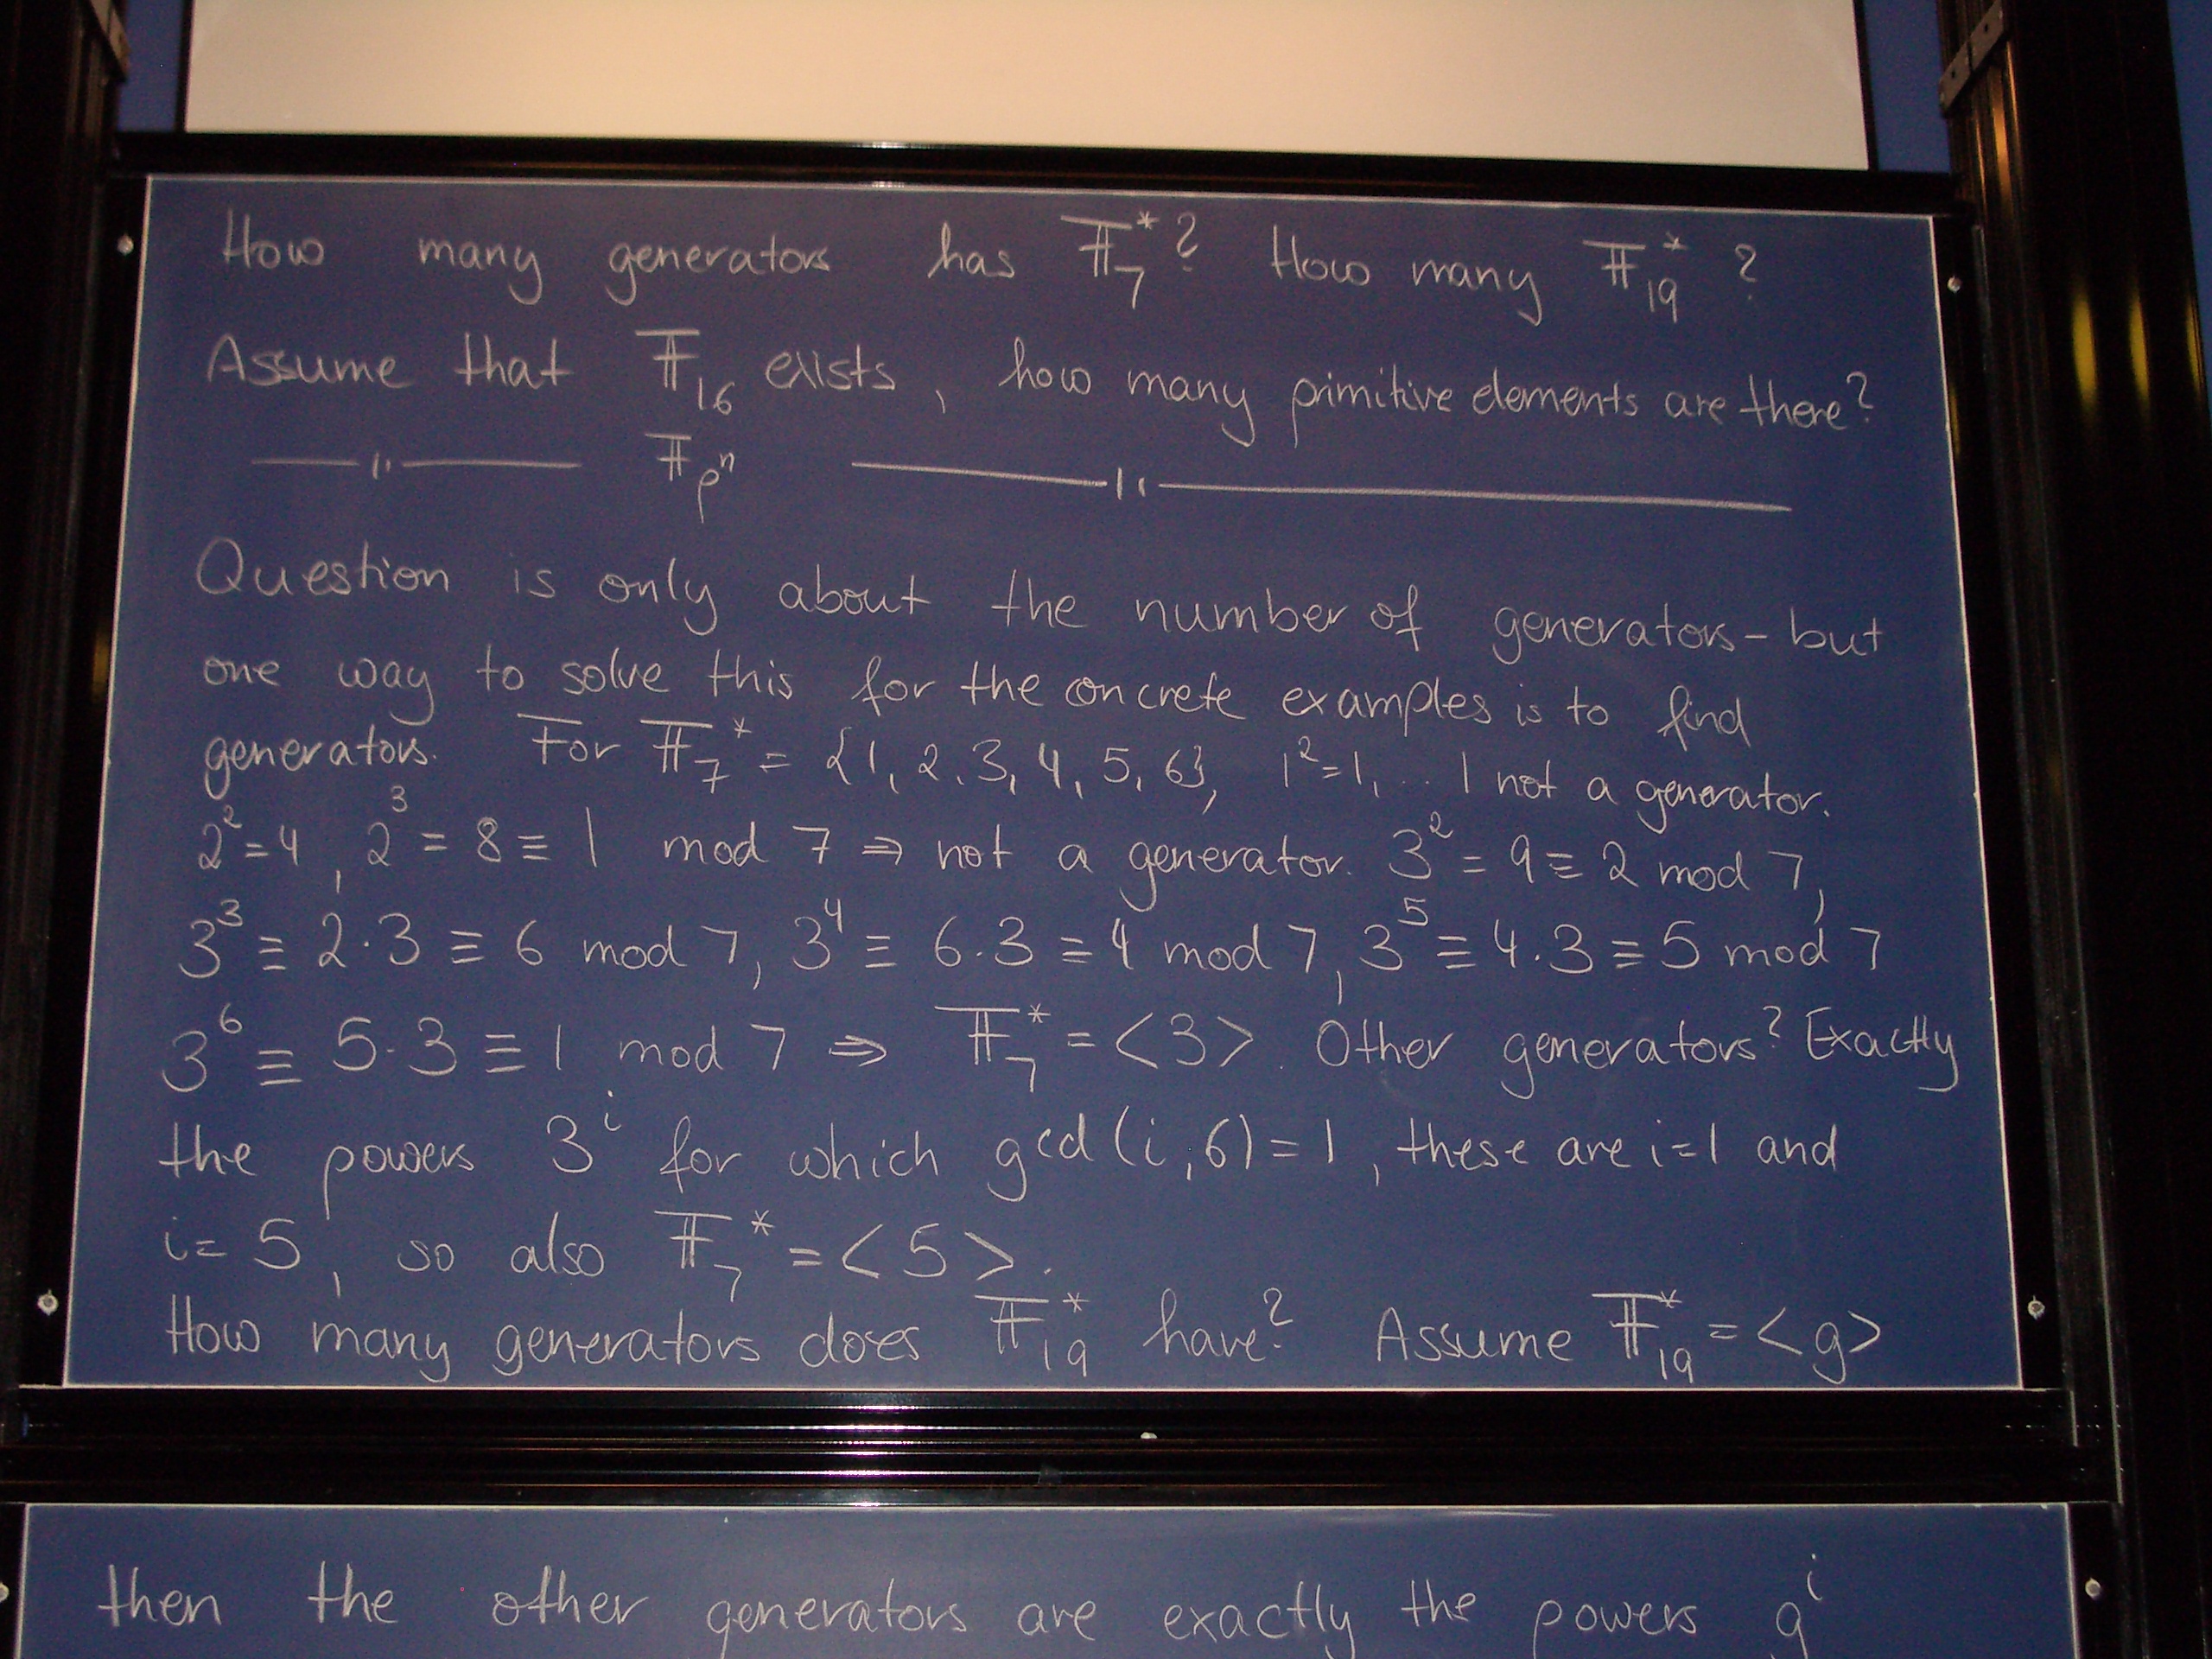 How many generators has 𝔽₇*? How many 𝔽₁₉* ?
Assume that 𝔽₁₆ exists, how many primitive elements are there?
—— " —— 𝔽_pⁿ —— " ——
Question is only about the number of generators - but
one way to solve this for the concrete examples is to find
generators. For 𝔽₇* = {1, 2, 3, 4, 5, 6}, 1²=1, .. 1 not a generator.
2²=4, 2³ = 8 ≡ 1 mod 7 ⇒ not a generator. 3² = 9 ≡ 2 mod 7,
3³ ≡ 2·3 ≡ 6 mod 7, 3⁴ ≡ 6·3 ≡ 4 mod 7, 3⁵ ≡ 4·3 ≡ 5 mod 7
3⁶ ≡ 5·3 ≡ 1 mod 7 ⇒ 𝔽₇* = <3>. Other generators? Exactly
the powers 3ⁱ for which gcd(i,6)=1, these are i=1 and
i=5, so also 𝔽₇* = <5>.
How many generators does 𝔽₁₉* have? Assume 𝔽₁₉* = <g>
then the other generators are exactly the powers gⁱ